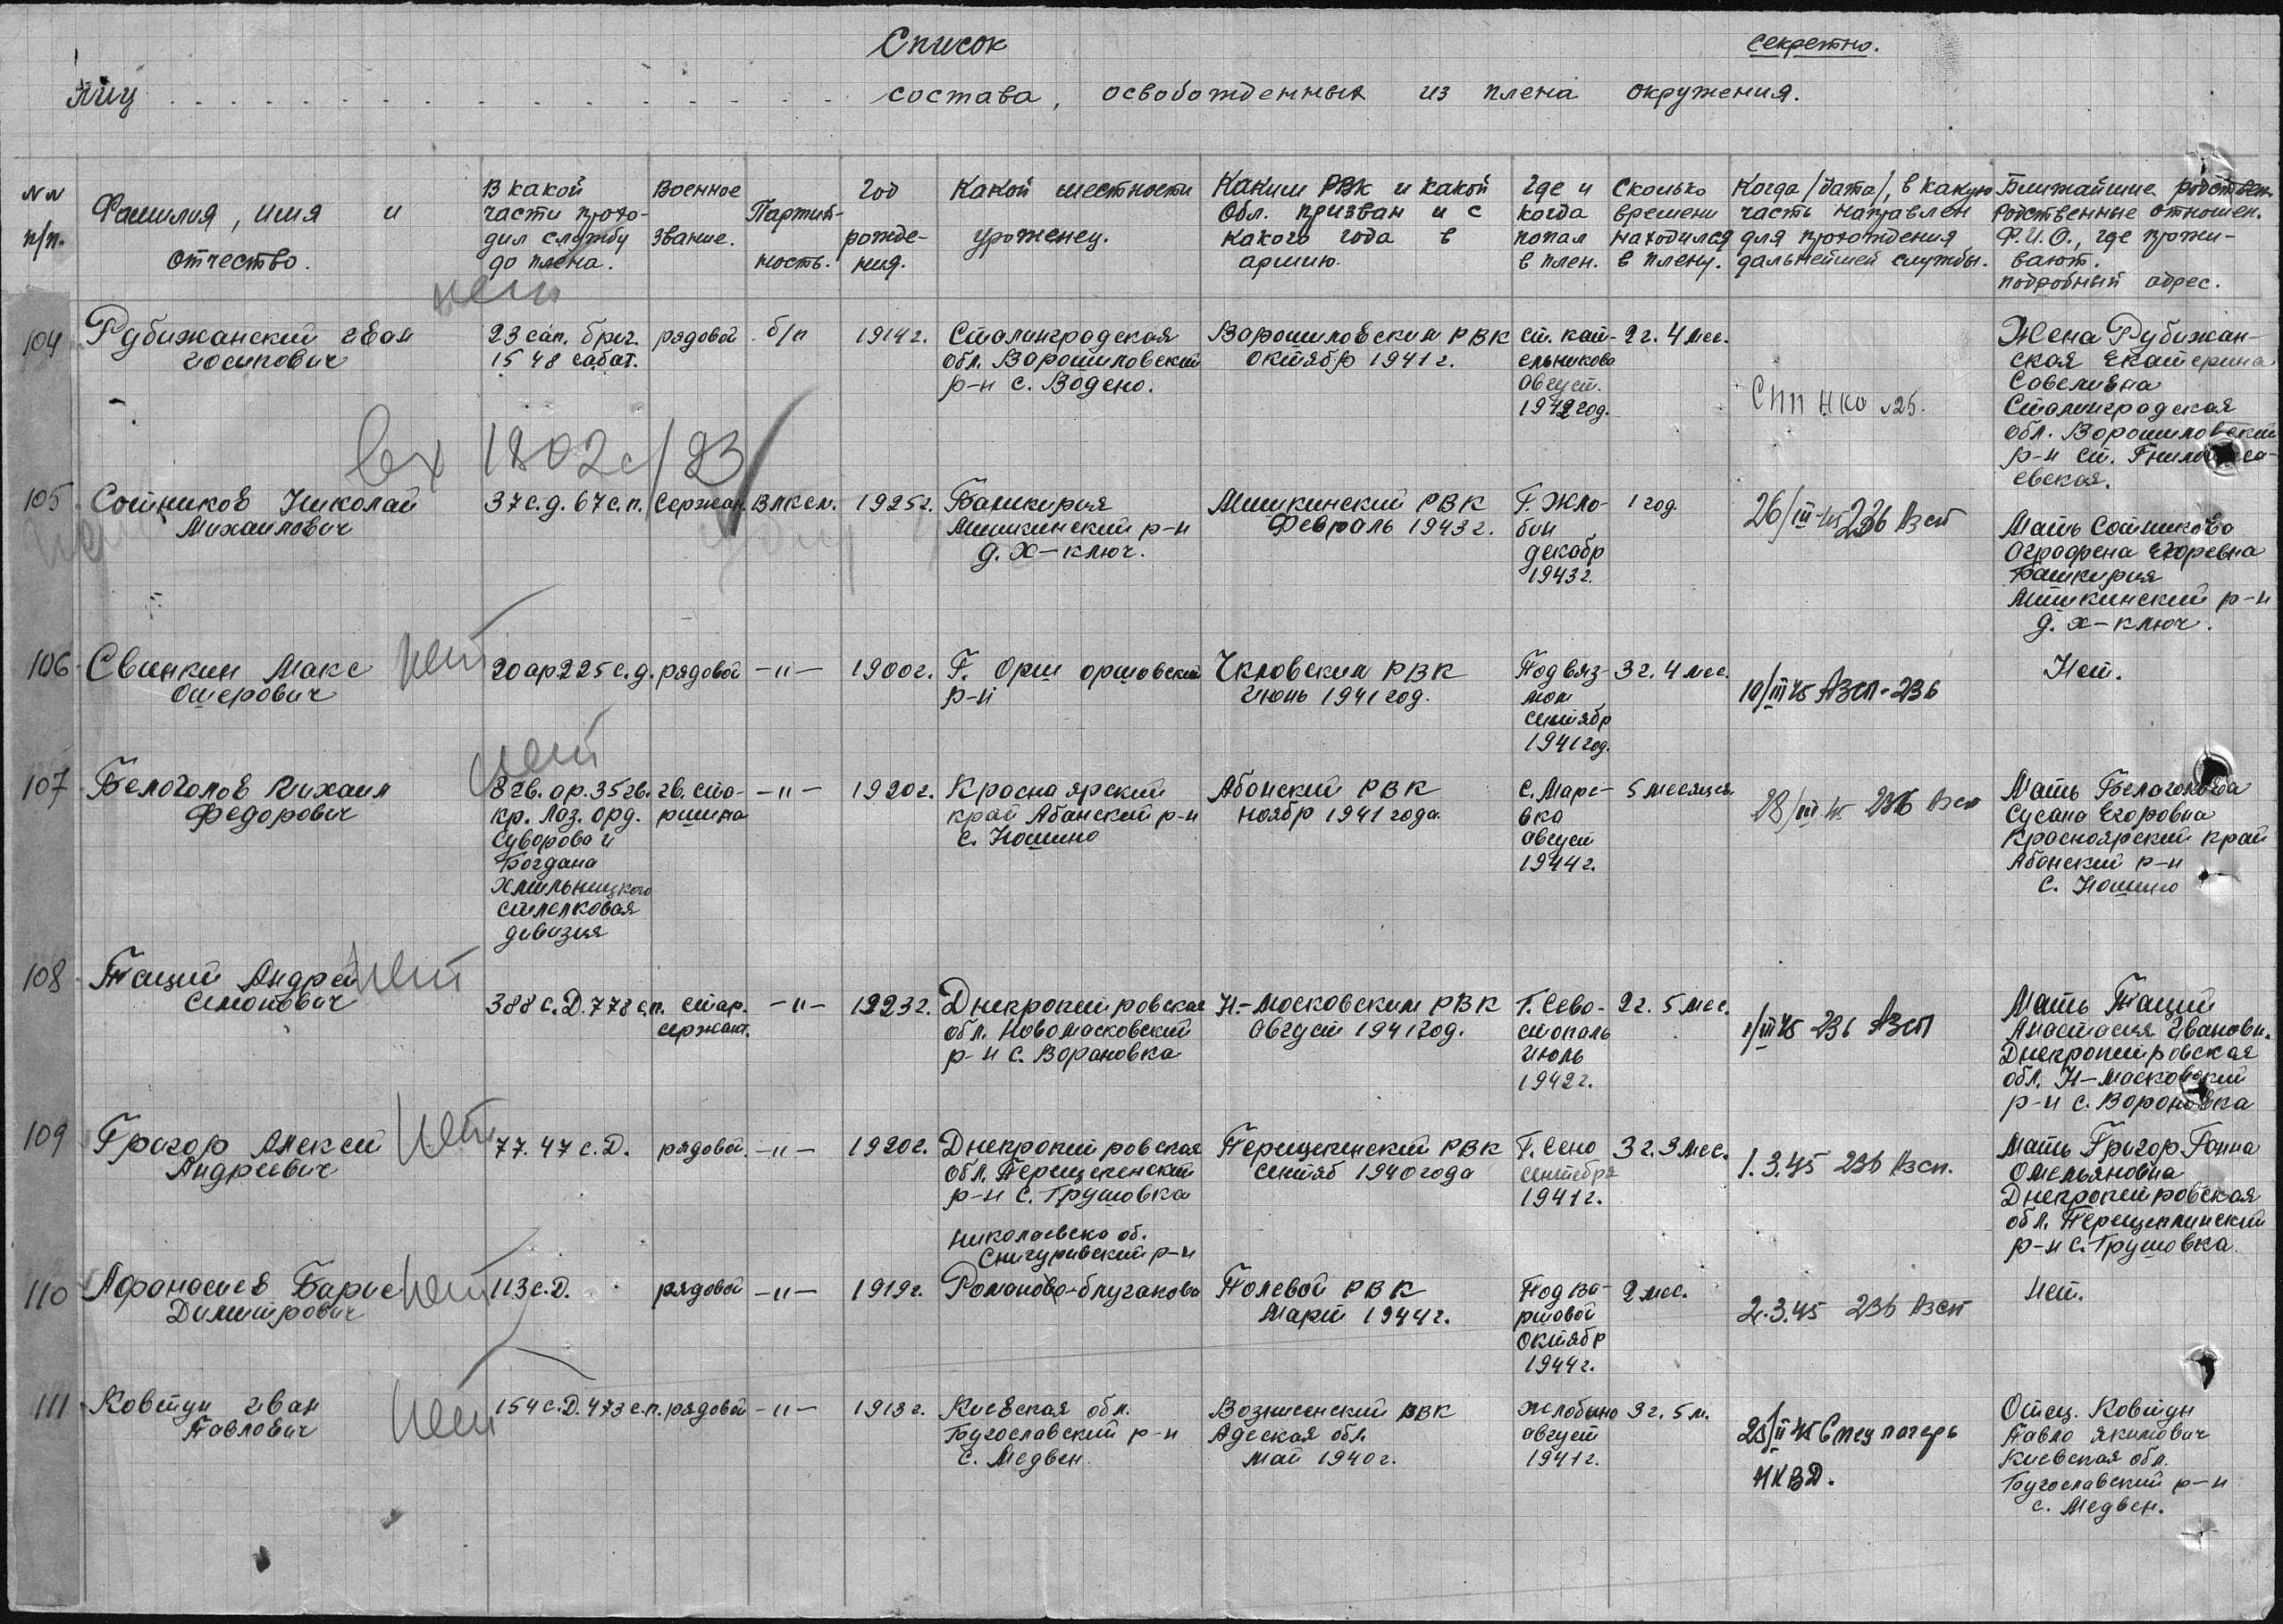 Список
секретно.
состава, освобожденных из плена окружения.
NN
п/п.
Фамилия, имя и
отчество.
В какой
части прохо-
дил службу
до плена.
Военное
звание.
Партий-
ность.
Год
рожде-
ния.
Какой местности
уроженец.
Каким РВК и какой
Обл. призван и с
какого года в
армию.
Где и
когда
попал
в плен.
Сколько
времени
находился
в плену.
Когда /дата/, в какую
часть направлен
для прохождения
дальнейшей службы.
Ближайшие родствен
Родственные отношен.
Ф.И.О., где прожи-
вают.
подробный адрес.
нет
104
Рубижанский Иван
иосипович
23 сап. бриг.
1548 сабат.
рядовой
б/п
1914г.
Сталинградская
обл. Ворошиловский
р-н с. Водено.
Ворошиловским РВК
октябр 1941г.
ст. кай-
ельниково
август.
1942 год.
2г. 4 мес.
СПП НКО №25.
Жена Рубижан-
ская Екатерина
Савеливна
Сталинградская
обл. Ворошиловский
р-н ст.
евская.
Вх 1802с/23
105
Сотников Николай
Михаилович
37 с.д. 67 с.п.
Сержан.
ВЛКСМ.
1925г.
Башкирия
Мишкинский р-н
д. Х-ключ.
Мишкинский РВК
Февраль 1943г.
Г. Жло-
бин
декабр
1943г.
1 год.
26/III-45 236 Азсп
Мать Сотникова
Аграфена Егоревна
Башкирия
Мишкинский р-н
д. х-ключ.
106
Свинкин Макс
Ошерович
нет
20 ар 225 с.д.
рядовой
-"-
1900г.
Г. Орш оршовский
р-н
Чкловским РВК
Июнь 1941 год.
Под вяз-
мой
сентябр
1941 год.
3г. 4 мес.
10/III 45 АЗСП-236
Нет.
нет
107
Белоголов Михаил
Федорович
8 гв. ар. 35 гв.
кр. Лоз. орд.
Суворова и
Богдана
Хмильницкого
стрелковая
дивизия
гв. ста-
ршина
-"-
1920г.
Красноярский
край Абанский р-н
с. Ношино
Абанский РВК
ноябр 1941 года.
с. Марс-
вка
август
1944г.
5 месяцев.
28/III 45 236 Азсп
Мать Белоголова
Сусана Егоровна
Красноярский край
Абанский р-н
с. Ношино
108
Таций Андрей
Симонович
нет
388 с.Д. 778 с.п.
стар.
сержант.
-"-
1923г.
Днепропитровская
обл. Новомасковский
р-н с. Вороновка
Н-Московским РВК
Август 1941 год.
Г. Сево-
стополь
Июль
1942г.
2г. 5 мес.
1/III 45 236 АЗСП
Мать Таций
Анастасия Ивановн.
Днепропитровская
обл. Н-Масковский
р-н с. Вороновка
109
Григор Алексей
Андреевич
нет
77. 47 с.Д.
рядовой.
-"-
1920г.
Днепропитровская
обл. Перищепенский
р-н с. Грушовка
Перищепинский РВК
сентяб 1940 года
Г. Сено
сентебря
1941г.
3г. 3 мес.
1.3.45 236 Азсп.
Мать Григор Ганна
Омельяновна
Днепропитровская
обл. Перещепинский
р-н с. Грушовка.
николаевска об.
Снигуривский р-н
110
Афонасиев Барис
Димитрович
нет
113 с.Д.
рядовой
-"-
1919г.
Романово-блуганово
Полевой РВК
Март 1944г.
Под Ва-
ршовой
октябр
1944г.
2 мес.
2.3.45 236 Азсп
Нет.
111
Ковтун Иван
Павлович
нет
154 с.Д. 473 с.п.
рядовой
-"-
1913г.
Киевская обл.
Бугославский р-н
с. Медвен.
Вознисенский РВК
Адеская обл.
май 1940г.
Жлобино
август
1941г.
3г. 5 м.
23/II 45 Спец лагерь
НКВД.
Отец. Ковтун
Павло Якимович
Киевская обл.
Бугославский р-н
с. Медвен.